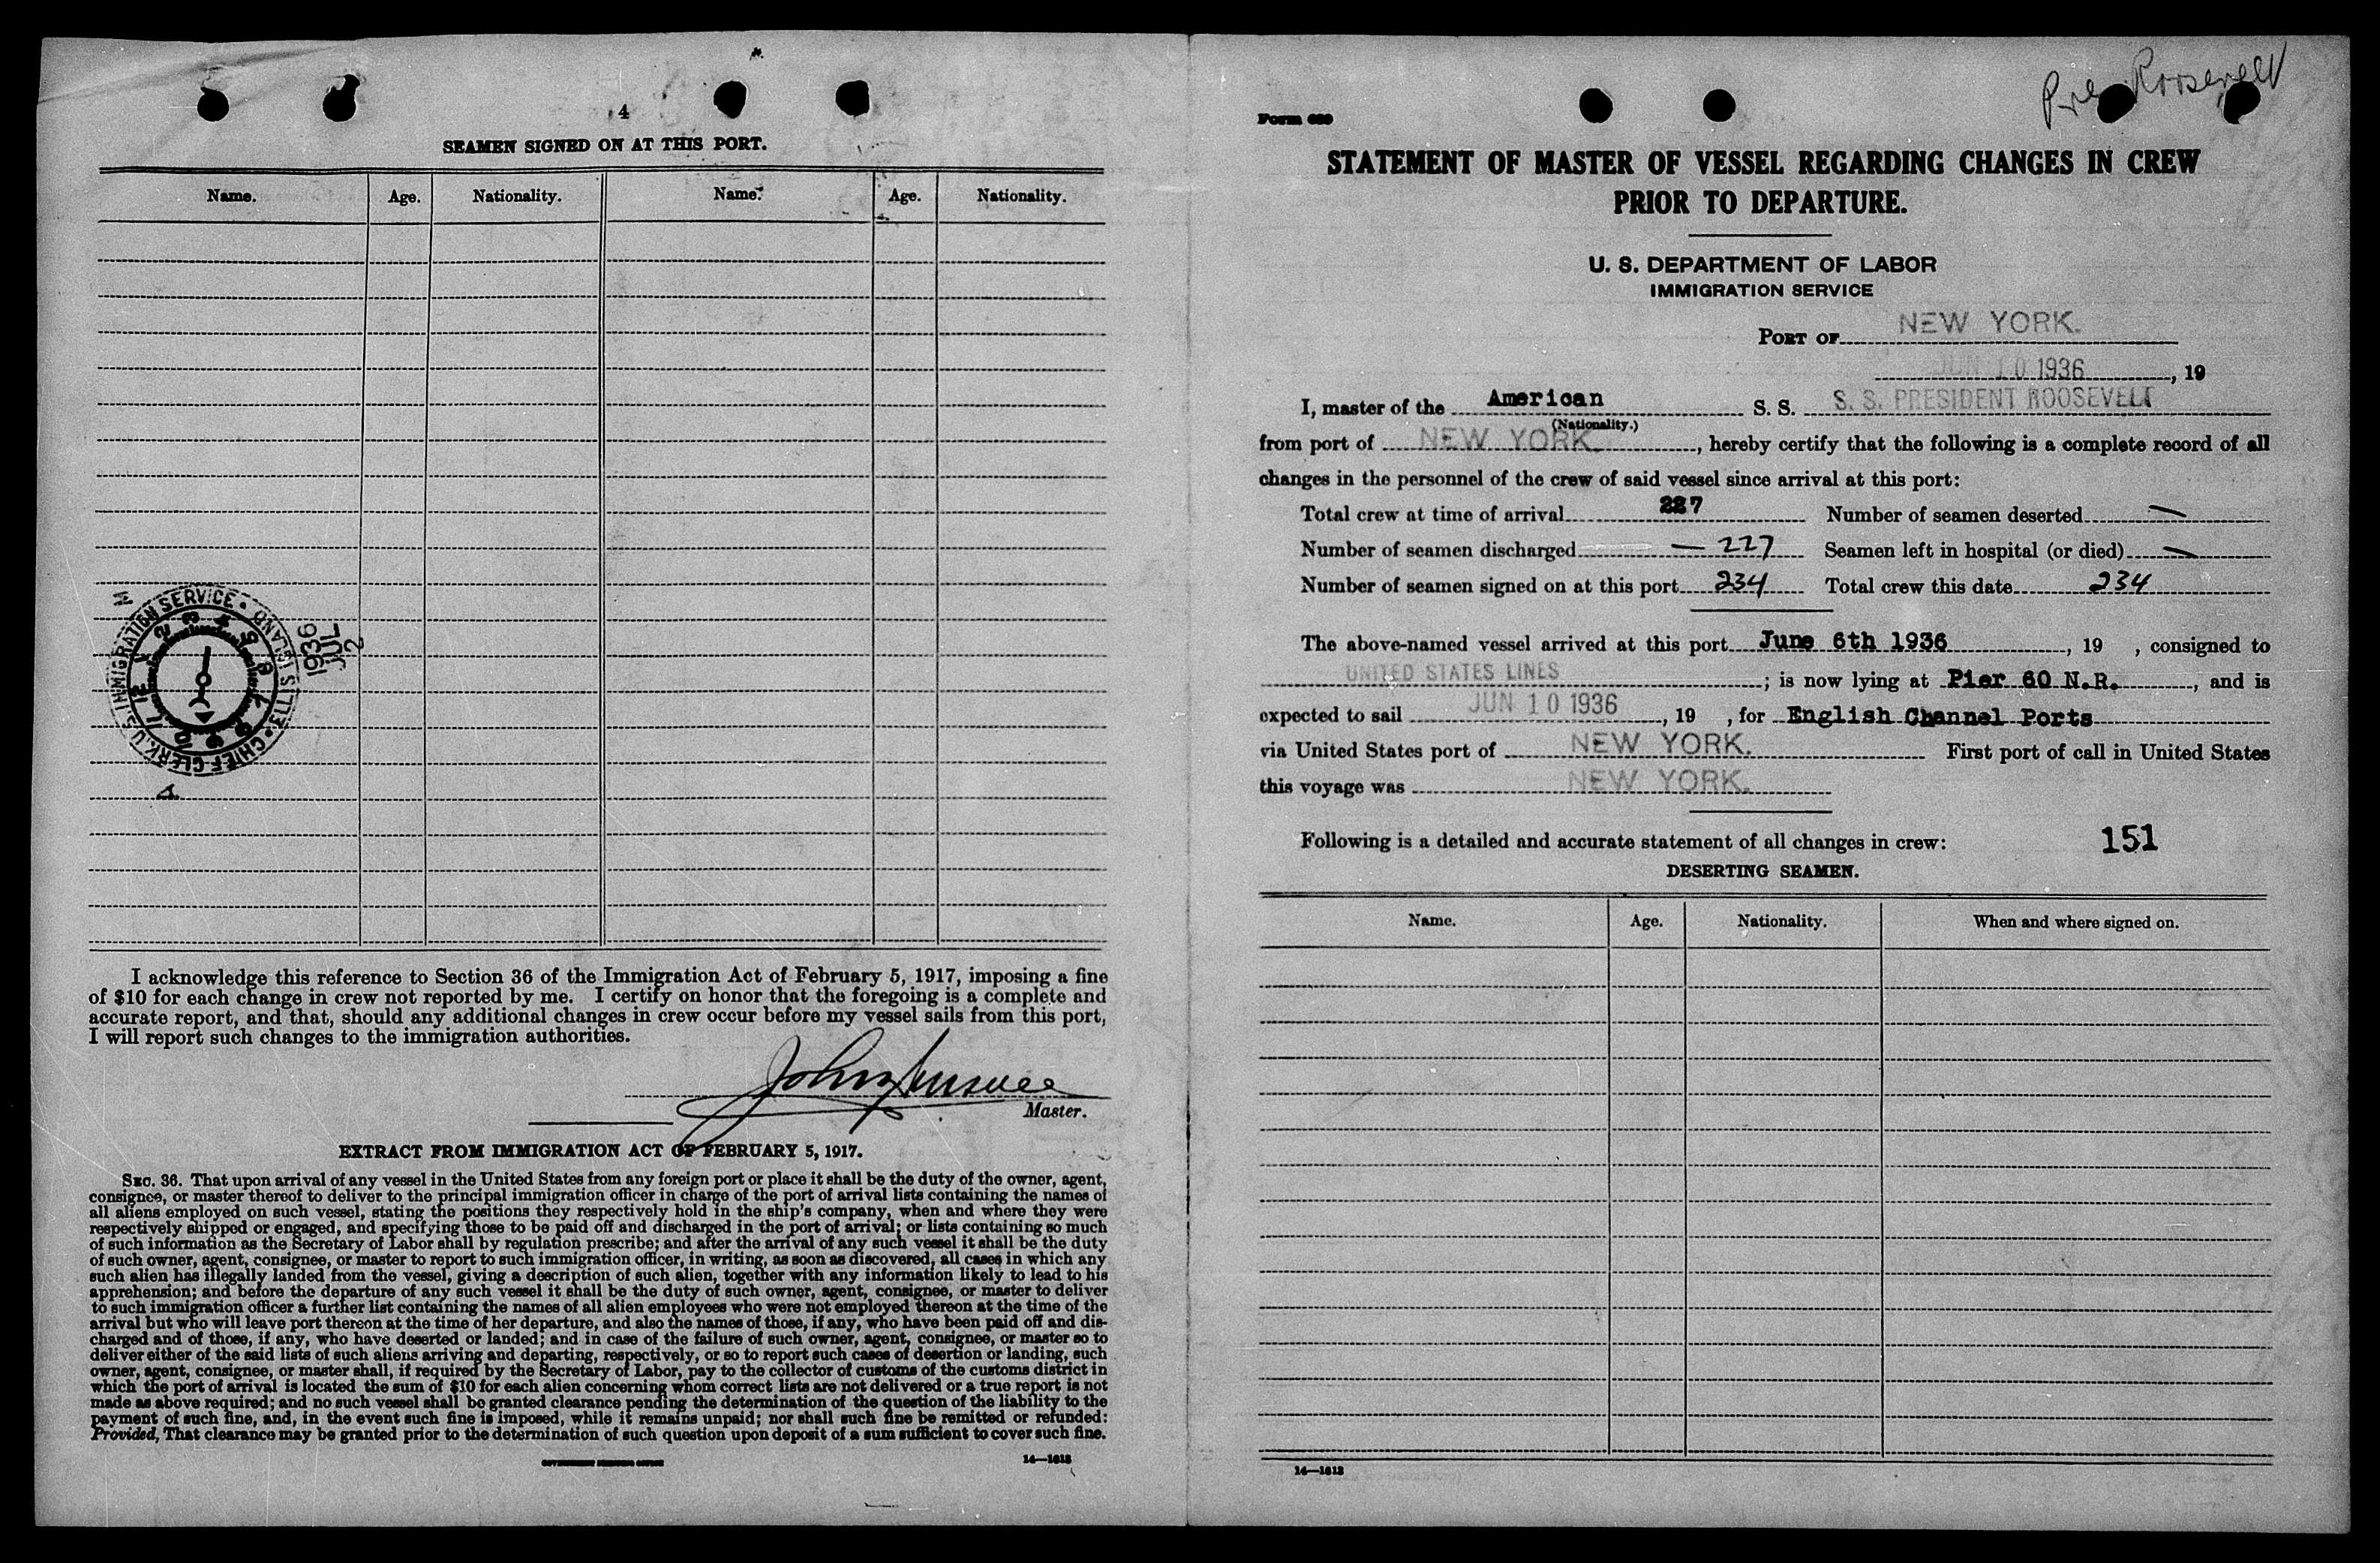 4
SEAMEN SIGNED ON AT THIS PORT.
Name. Age. Nationality. Name. Age. Nationality.
U. S. IMMIGRATION SERVICE • ELLIS ISLAND • CHIEF CLERK
1936
JUL
2
I acknowledge this reference to Section 36 of the Immigration Act of February 5, 1917, imposing a fine
of $10 for each change in crew not reported by me. I certify on honor that the foregoing is a complete and
accurate report, and that, should any additional changes in crew occur before my vessel sails from this port,
I will report such changes to the immigration authorities.
Master.
EXTRACT FROM IMMIGRATION ACT OF FEBRUARY 5, 1917.
SEC. 36. That upon arrival of any vessel in the United States from any foreign port or place it shall be the duty of the owner, agent,
consignee, or master thereof to deliver to the principal immigration officer in charge of the port of arrival lists containing the names of
all aliens employed on such vessel, stating the positions they respectively hold in the ship's company, when and where they were
respectively shipped or engaged, and specifying those to be paid off and discharged in the port of arrival; or lists containing so much
of such information as the Secretary of Labor shall by regulation prescribe; and after the arrival of any such vessel it shall be the duty
of such owner, agent, consignee, or master to report to such immigration officer, in writing, as soon as discovered, all cases in which any
such alien has illegally landed from the vessel, giving a description of such alien, together with any information likely to lead to his
apprehension; and before the departure of any such vessel it shall be the duty of such owner, agent, consignee, or master to deliver
to such immigration officer a further list containing the names of all alien employees who were not employed thereon at the time of the
arrival but who will leave port thereon at the time of her departure, and also the names of those, if any, who have been paid off and dis-
charged and of those, if any, who have deserted or landed; and in case of the failure of such owner, agent, consignee, or master so to
deliver either of the said lists of such aliens arriving and departing, respectively, or so to report such cases of desertion or landing, such
owner, agent, consignee, or master shall, if required by the Secretary of Labor, pay to the collector of customs of the customs district in
which the port of arrival is located the sum of $10 for each alien concerning whom correct lists are not delivered or a true report is not
made as above required; and no such vessel shall be granted clearance pending the determination of the question of the liability to the
payment of such fine, and, in the event such fine is imposed, while it remains unpaid; nor shall such fine be remitted or refunded:
Provided, That clearance may be granted prior to the determination of such question upon deposit of a sum sufficient to cover such fine.
GOVERNMENT PRINTING OFFICE 14—1613
Pre Roosevelt
Form 689
STATEMENT OF MASTER OF VESSEL REGARDING CHANGES IN CREW
PRIOR TO DEPARTURE.
U. S. DEPARTMENT OF LABOR
IMMIGRATION SERVICE
PORT OF NEW YORK.
JUN 10 1936, 19
I, master of the American S. S. S. S. PRESIDENT ROOSEVELT
(Nationality.)
from port of NEW YORK, hereby certify that the following is a complete record of all
changes in the personnel of the crew of said vessel since arrival at this port:
Total crew at time of arrival 227 Number of seamen deserted —
Number of seamen discharged — 227 Seamen left in hospital (or died) —
Number of seamen signed on at this port 234 Total crew this date 234
The above-named vessel arrived at this port June 6th 1936, 19 , consigned to
UNITED STATES LINES; is now lying at Pier 60 N.R., and is
expected to sail JUN 10 1936, 19 , for English Channel Ports
via United States port of NEW YORK. First port of call in United States
this voyage was NEW YORK.
Following is a detailed and accurate statement of all changes in crew: 151
DESERTING SEAMEN.
Name. Age. Nationality. When and where signed on.
14—1613